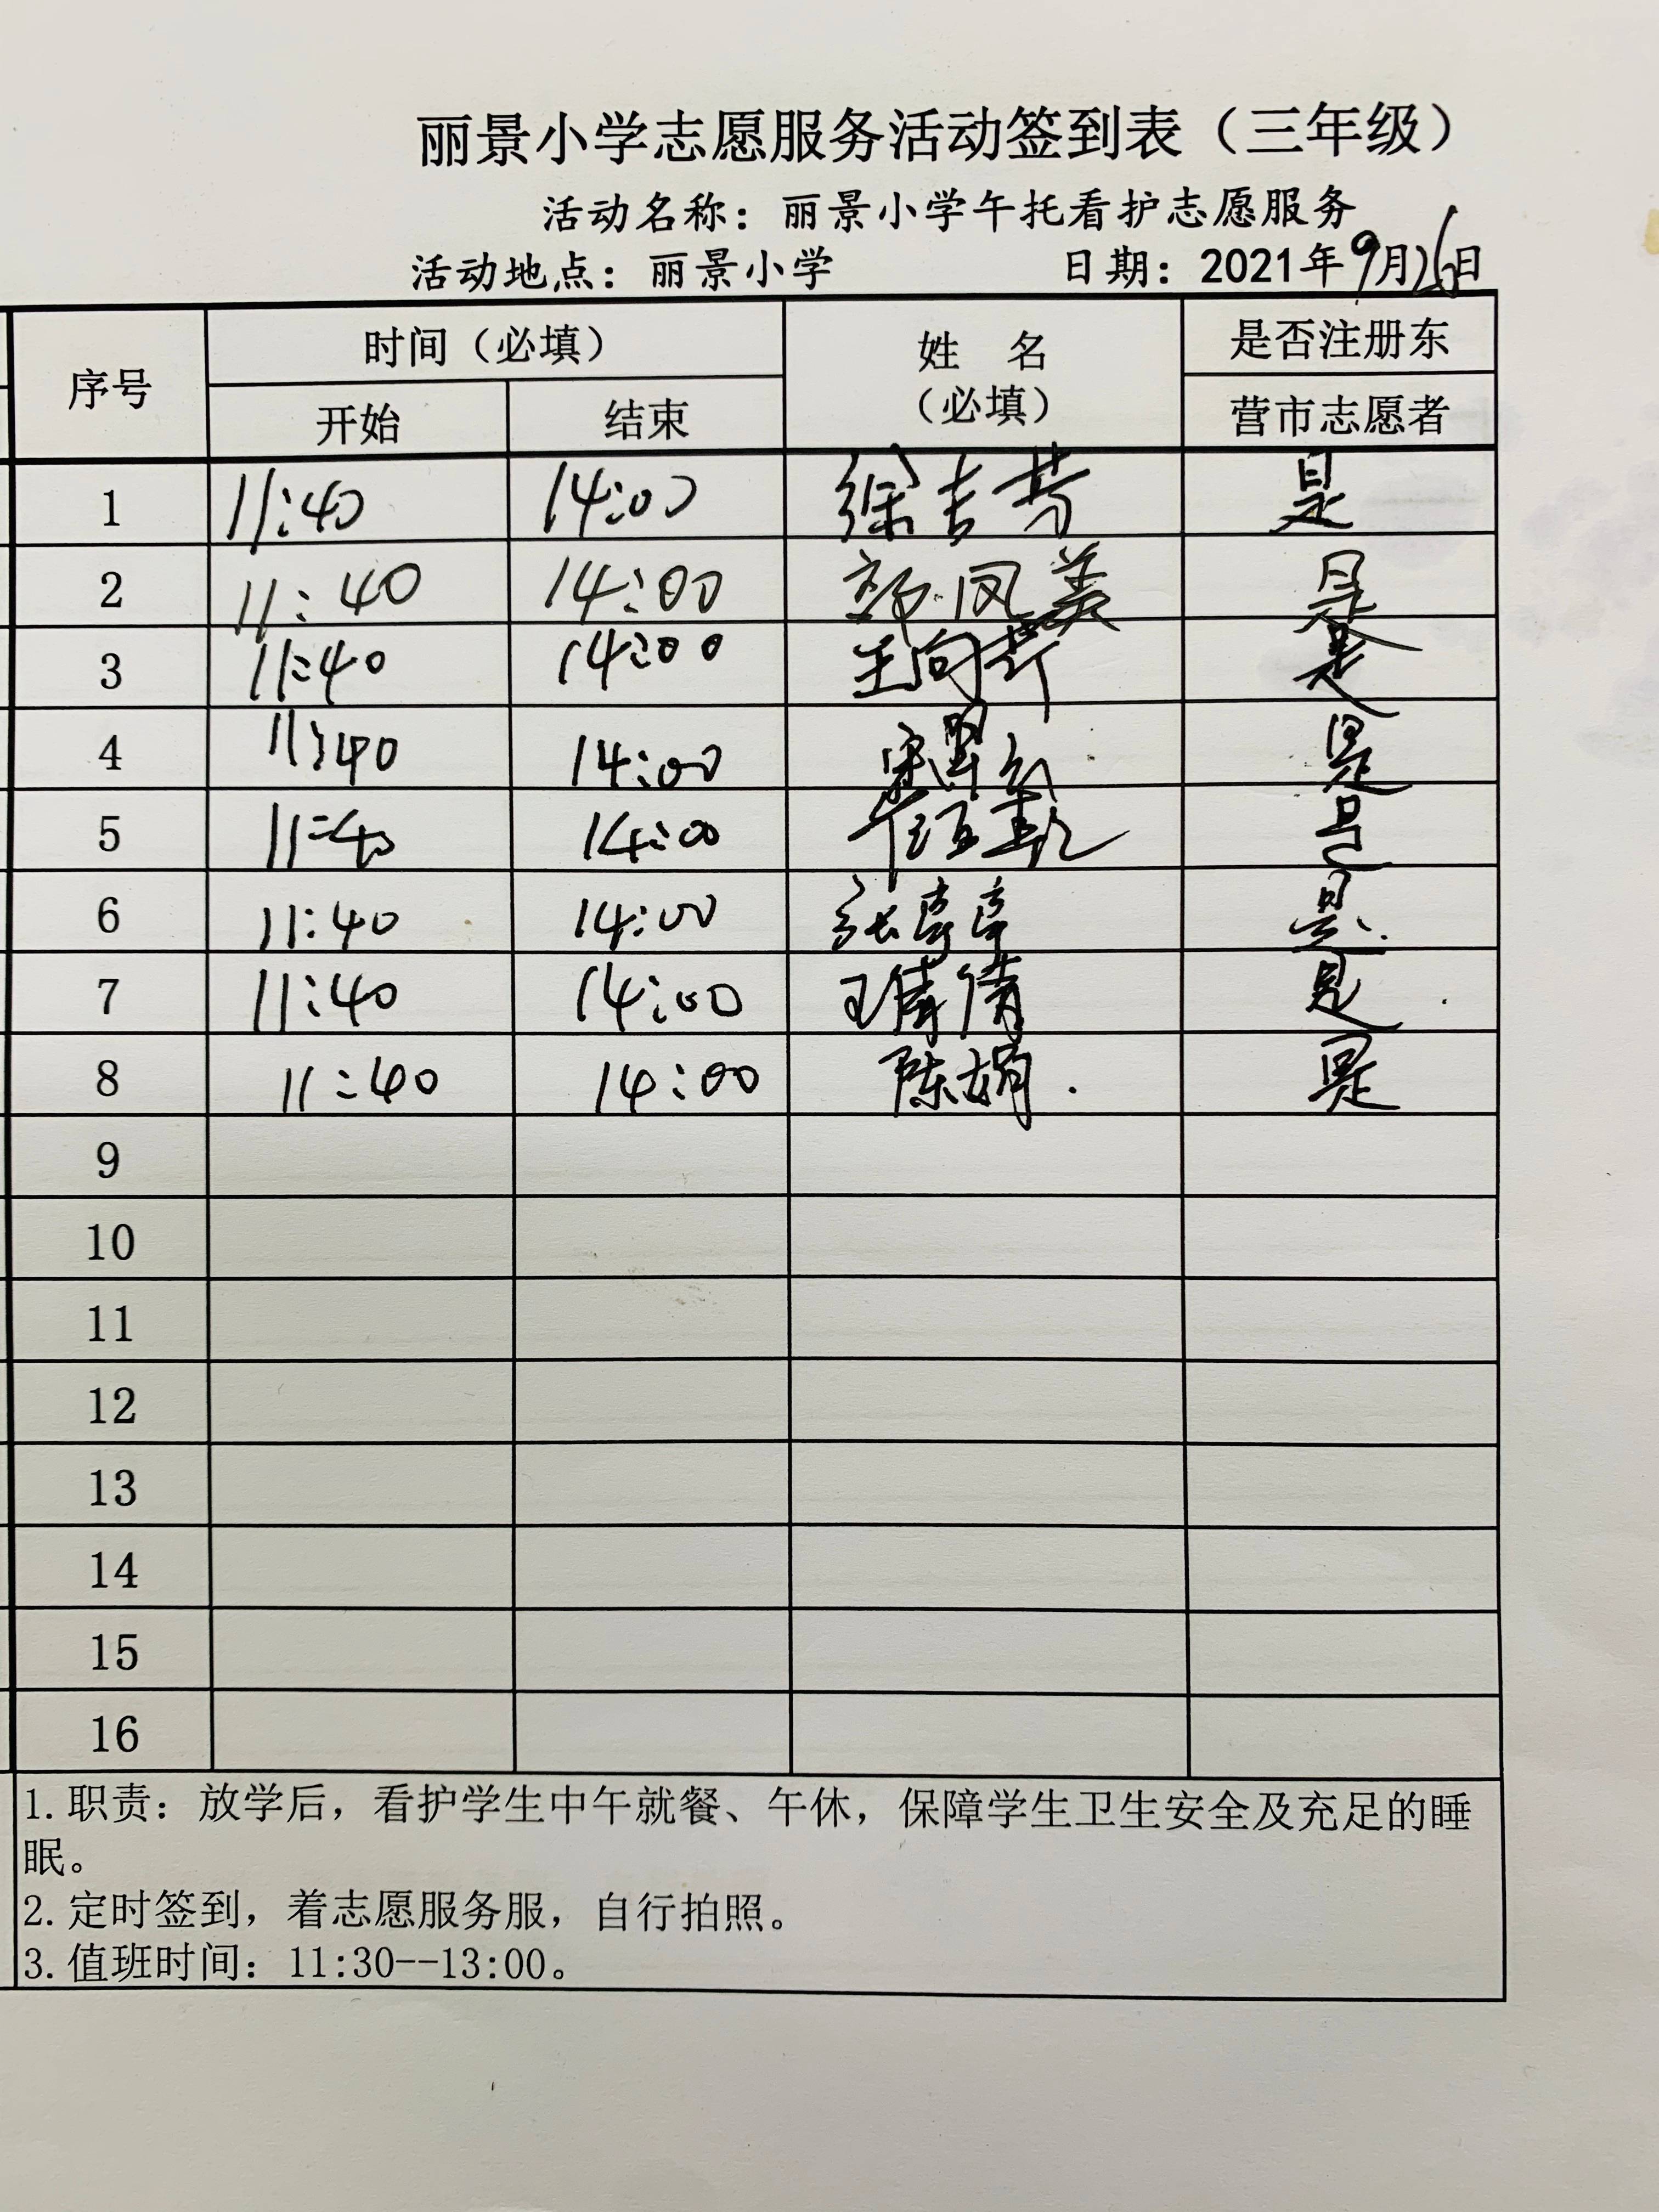 丽景小学志愿服务活动签到表（三年级）
活动名称：丽景小学午托看护志愿服务
活动地点：丽景小学 日期：2021年9月26日
序号 时间（必填） 姓 名（必填） 是否注册东营市志愿者
开始 结束
1 11:40 14:00 徐吉芳 是
2 11:40 14:00 郭凤美 是
3 11:40 14:00 王向芹 是
4 11:40 14:00 是
5 11:40 14:00 是
6 11:40 14:00 张亭亭 是
7 11:40 14:00 王倩倩 是
8 11:40 14:00 陈娟 是
9
10
11
12
13
14
15
16
1.职责：放学后，看护学生中午就餐、午休，保障学生卫生安全及充足的睡
眠。
2.定时签到，着志愿服务服，自行拍照。
3.值班时间：11:30--13:00。